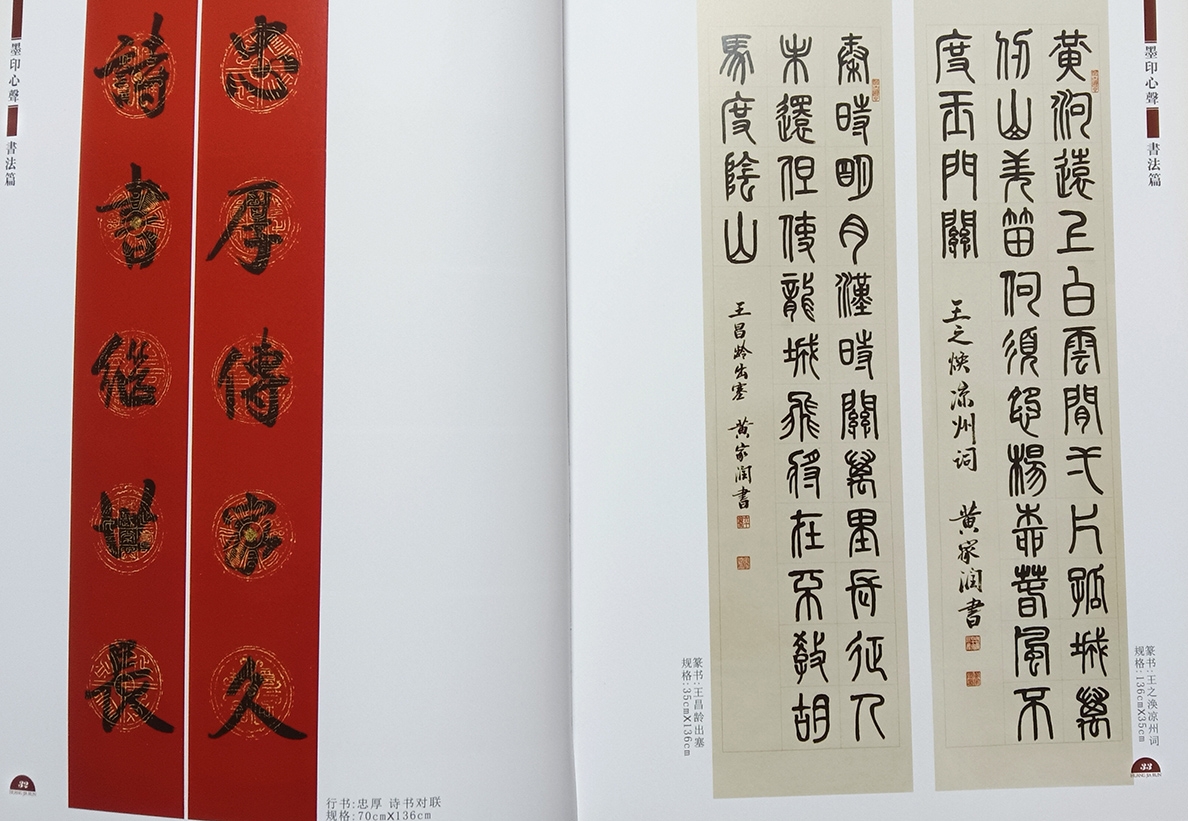 墨印心聲
書法篇
忠厚傳家久
詩書繼世長
行书:忠厚 诗书对联
规格:70cmX136cm
32
墨印心聲
書法篇
黃河遠上白雲間弌片孤城萬
仞山羌笛何須怨楊柳春風不
度玉門關
王之焕凉州词 黄家润書
篆书:王之涣凉州词
规格:136cmX35cm
秦時明月漢時關萬里長征人
未還但使龍城飛將在不敎胡
馬度陰山
王昌龄出塞 黄家润書
篆书:王昌龄出塞
规格:35cmX136cm
33
HUANG JIA RUN